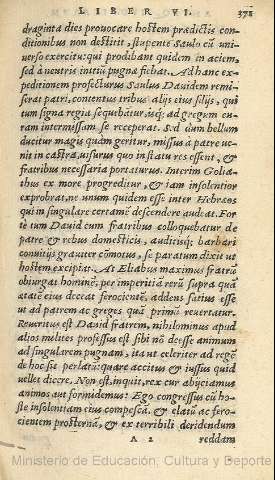 LIBER VI. 371
draginta dies prouocare hostem predictis con-
ditionibus non destitit, stupente Saulo cũ uni-
uerso exercitu: qui prodibant quidem in aciem,
sed à neutris initiũ pugnæ fiebat. Ad hanc ex-
peditionem profecturus Saulus Dauidem remi-
serat patri, contentus tribus alijs eius filijs, qui
tum signa regis sequebãtur, isq; ad gregum cu-
ram intermissam se receperat. Sed dum bellum
ducitur magis quàm geritur, missus à patre ue-
nit in castra, uisurus quo in statu res essent, &
fratribus necessaria portaturus. Interim Golia-
thus ex more progreditur, & iam insolentior
exprobrat, ne unum quidem esse inter Hebræos
qui in singulare certamẽ descendere audeat. For
te tum Dauid cum fratribus colloquebatur de
patre & rebus domesticis, auditisq; barbari
conuitijs grauiter cõmotus, se paratum dixit ut
hostem excipiat. At Eliabus maximus fratrũ
obiurgat hominẽ, per imperitiã rerũ supra quã
ætatẽ eius deceat ferocientẽ, addens satius esse
ut ad patrem ac greges quã primũ reuertatur.
Reueritus est Dauid fratrem, nihilominus apud
alios milites professus est sibi nõ deesse animum
ad singularem pugnam, ita ut celeriter ad regẽ
de hoc sit perlatũ: quare accitus & iussus quid
uellet dicere, Non est, inquit, rex cur abijciamus
animos aut formidemus: Ego congressus cũ ho-
ste insolentiam eius compescã, & elatũ ac fero-
cientem prosternã, & ex terribili deridendum
A 2 reddam
Ministerio de Educación, Cultura y Deporte